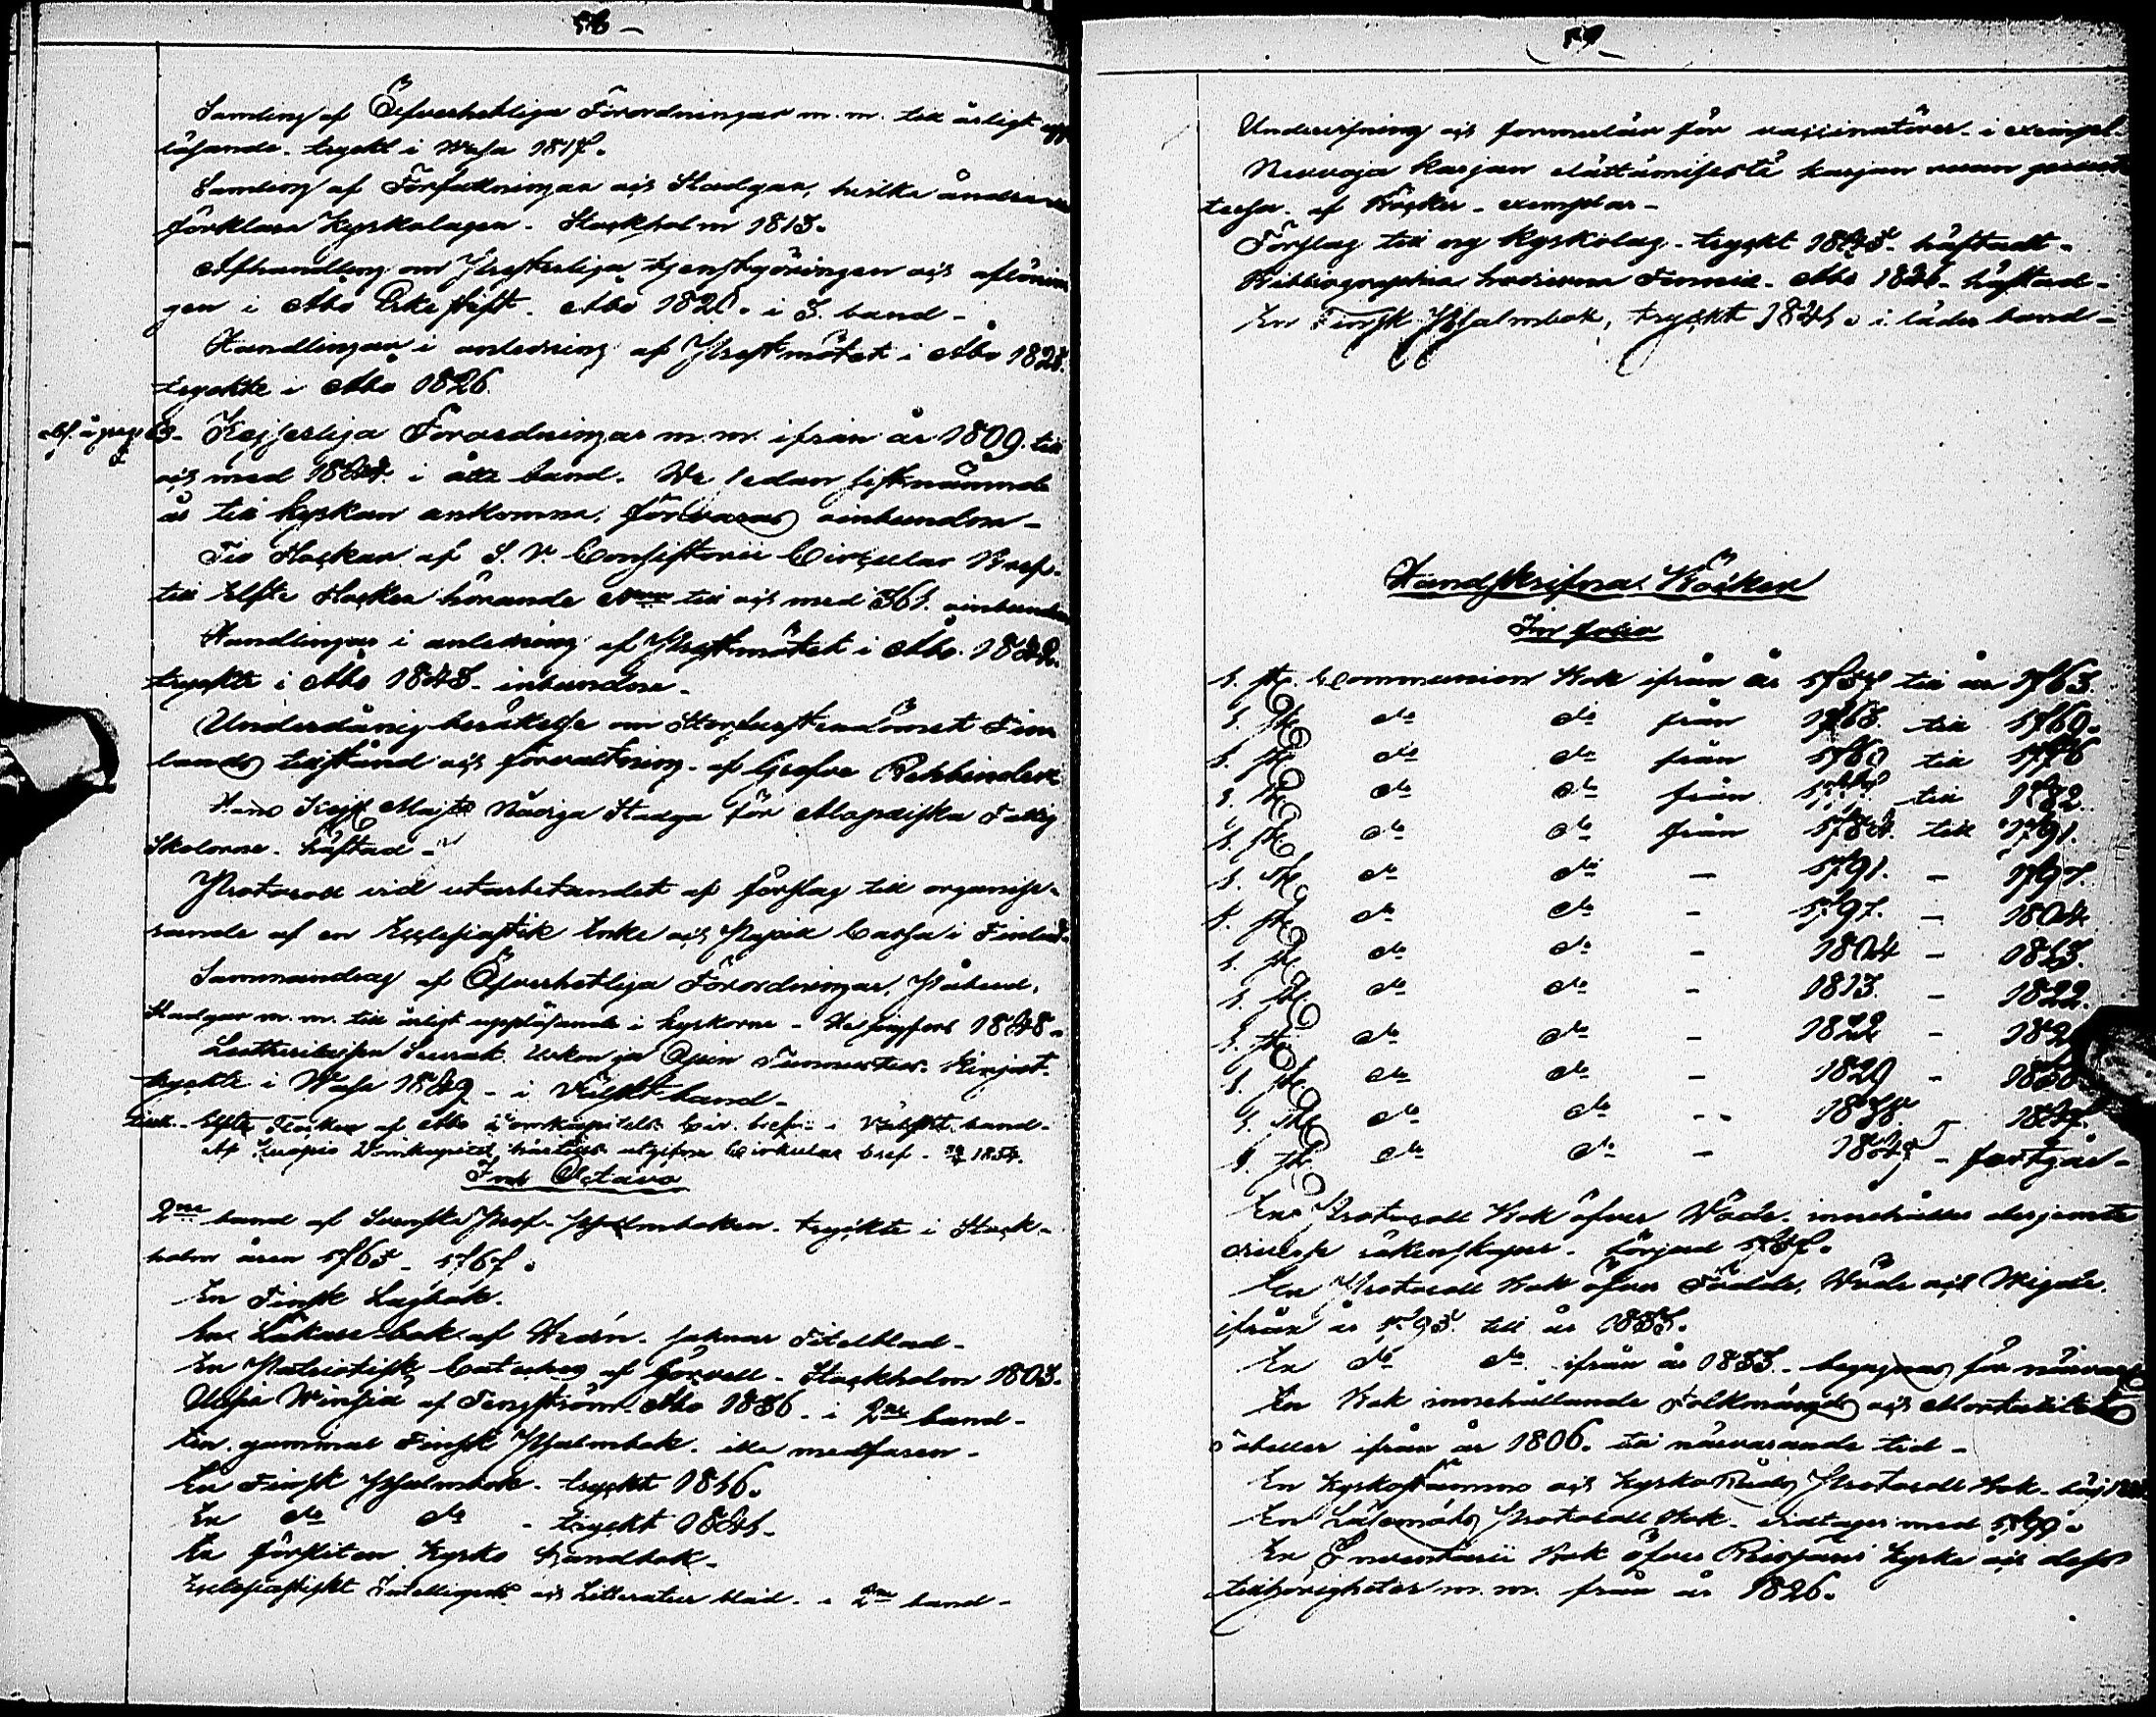 58 –
Samling af Öfverhetliga Förordningar m. m. till årligt upp
läsande. tryckt i Wasa 1817.
Samling af Författningar och Stadgar, hvilka ändra
förklara Kyrkolagen. Stockholm 1813.
Afhandling om Presterliga tjenstgöringen och aflönin
gen i Åbo Erkestift. Åbo 1820. i 3. band –
Handlingar i anledning af Prestmötet i Åbo 1825.
tryckte i Åbo 1826.
Kejserliga Förordningar m. m. ifrån år 1809. till
och med i åtta band. De sedan sistnämnde
år till kyrkan ankomna, förvaras oinbundne –
Tio Flockar af S. V. Consistorii Circulair Bref.
till Elfte Flocken hörande till och med 361. oinbundne
Handlingar i anledning af Prestmötet i Åbo. 1842.
tryckte i Åbo 1843. inbundne –
Underdånig berättelse om Storfurstendömet Fin
lands tillstånd och förvaltning. af Grefve Rehbinder
Hans Kejs. Majts Nådiga Stadga för
Skolorne. häftad –
Protocoll vid utarbetandet af förslag till organise-
rande af en Ecclesiastik Enke och Pupill Cassa i Finland.
Sammandrag af Öfverhetliga Förordningar, Påbud,
Stadgar m. m. till årligt uppläsande i kyrkorne – Helsingfors 1848 –
Lutheruksen Seurak. Uskon ja Opin Tunnustus. Kirjat.
tryckte i Wasa 1849 – i Välskt band –
Elfte Flocken af Åbo Domkapitels Cir. bref – i Välskt band –
Af Kuopio Domkapitel härtills utgifne Cirkulär bref – 1854.
In Octavo
2ne band af Svenska Prof. Psalmboken. tryckte i Stock-
holm åren 1765 – 1767.
En Finsk Lagbok.
En Läkare-bok af Hedrén. saknar Titelblad –
En Patriotisk Cateches af Gjörvell. Stockholm 1803.
Uusia Wirsiä af Tengström. Åbo 1836. i 2ne band –
En gammal Finsk Psalmbok. illa medfaren –
En Finsk Psalmbok. tryckt 1816.
En do do – tryckt 1841 –
En försliten Kyrko Handbok –
Ecclesiastikt Intelligents och Litteratur blad – i 2ne band –
59
Undervisning och formulär för vaccinatörer – i exempl.
Neuvoja karjan elättämisestä karjan
af Böcker – exemplar –
Förslag till ny Kyrkolag. tryckt 1845. häftadt –
Bibliographia hodierna Fennia. Åbo 1846. häftad –
En Finsk Psalmbok, tryckt 1841. i läder band –
Handskrifna Böcker
In folio
1. st. Communion Bok ifrån år till år 1763.
1. st. do do från till 1769.
1. st. do do från till 1776
1. st. do do från till 1782.
1. st. do do från 1784. till 1791.
1. st. do do – 1791. – 1797.
1. st. do do – 1797. – 1804.
1. st. do do – 1804 – 1813.
1. st. do do – 1813. – 1822.
1. st. do do – 1822 –
1. st. do do – 1829 –
1. st. do do – 1838 – 1847.
1. st. do do – – fortgår –
En Protocoll Bok öfver Döde. innehåller desjemte
diverse räkenskaper. börjad
En Protocoll Bok öfver Födde, Döde och Wigde.
ifrån år till år 1833.
En do do ifrån år 1833. – begagnas för närvar
En Bok innehållande Folkmängds och Mortalitets
Tabeller ifrån år 1806. till närvarande tid –
En Kyrkostämmo och KyrkoRåds Protocoll Bok –
En Läsemöts Protocoll Bok. vidtager med 1799.
En Inventarii Bok öfver Reisjärvi Kyrka och dess
tillhörigheter m. m. från år 1826.